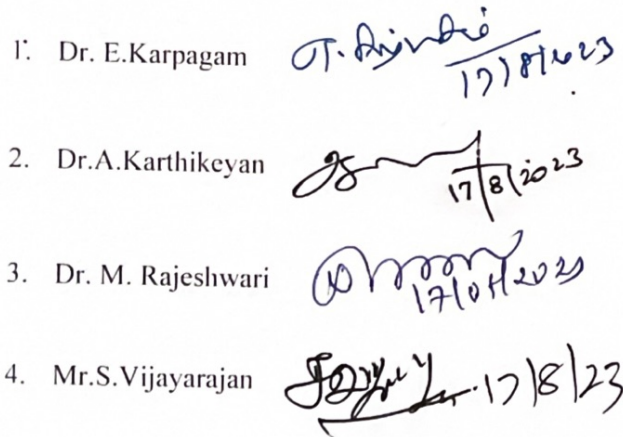 1. Dr. E.Karpagam 17/8/2023
2. Dr.A.Karthikeyan 17/8/2023
3. Dr. M. Rajeshwari
4. Mr.S.Vijayarajan 17/8/23